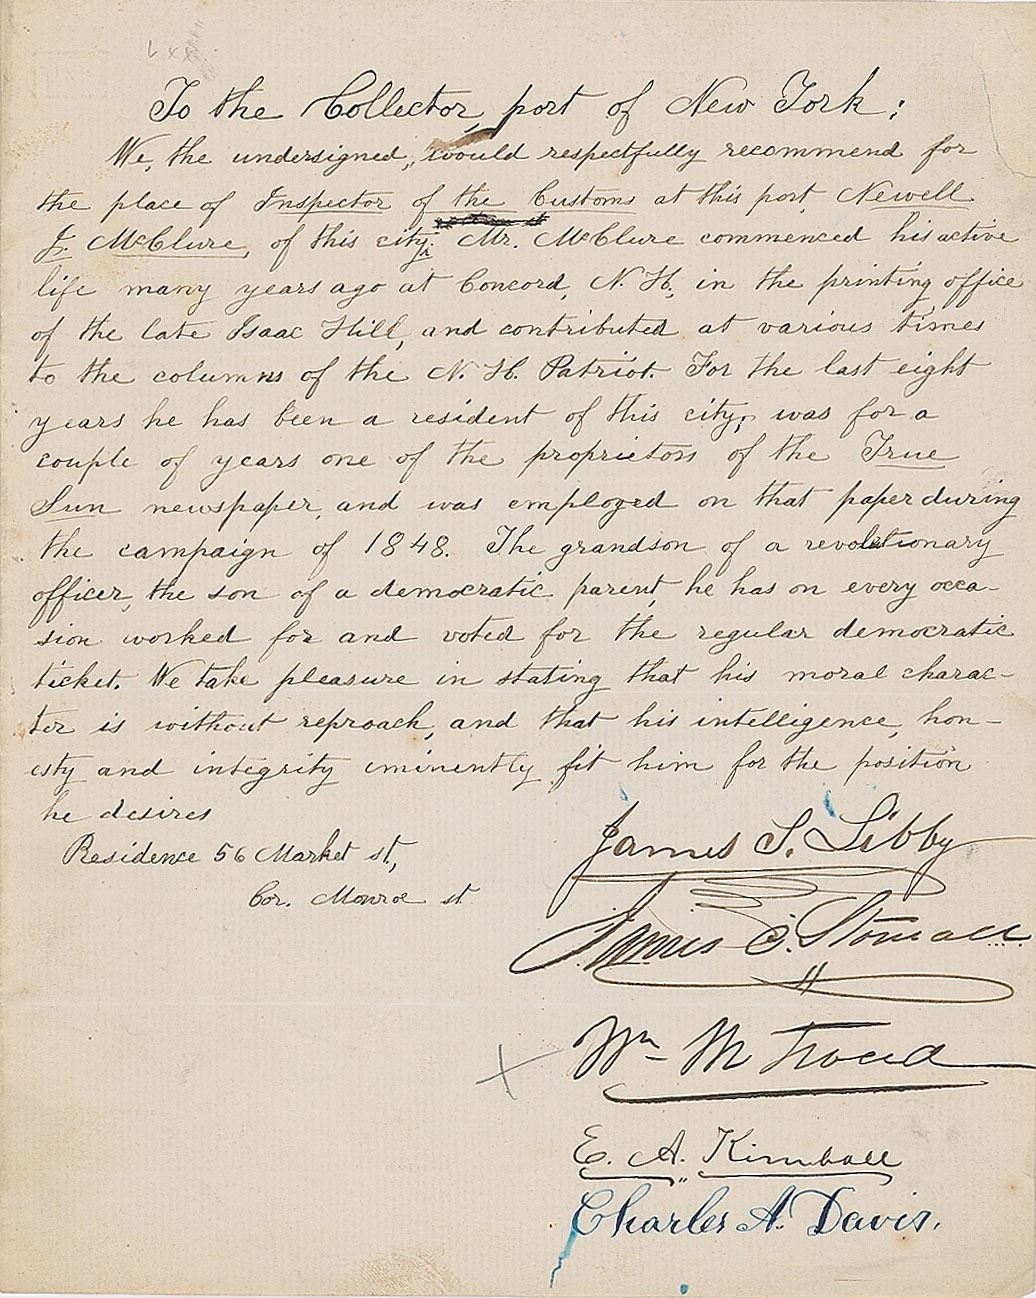 To the Collector, port of New York:
We, the undersigned, would respectfully recommend for
the place of Inspector of the Customs at this port, Newell
J. McClure, of this city. Mr. McClure commenced his active
life many years ago at Concord, N. H., in the printing office
of the late Isaac Hill, and contributed at various times
to the columns of the N. H. Patriot. For the last eight
years he has been a resident of this city, was for a
couple of years one of the proprietors of the True
Sun newspaper, and was employed on that paper during
the campaign of 1848. The grandson of a revolutionary
officer, the son of a democratic parent, he has on every occa-
sion worked for and voted for the regular democratic
ticket. We take pleasure in stating that his moral charac-
ter is without reproach, and that his intelligence, hon-
esty and integrity eminently fit him for the position
he desires
Residence 56 Market st,
Cor. Monroe st
James S. Libby
James
Wm M Tweed
E. A. Kimball
Charles A. Davis.